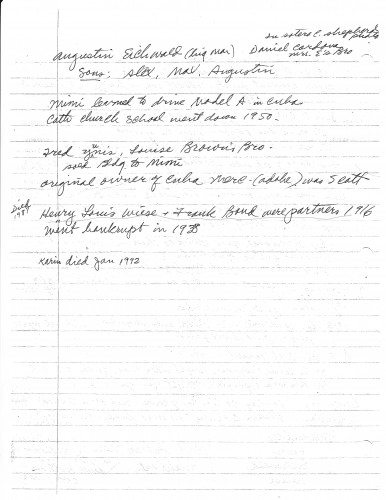 on esters c. shepherd photo
Augustin Eichwald (big man) Daniel Cordova
Mrs. E's Bro
Sons: Alex, Max, Augustin
Mimi learned to drive Model A in Cuba
Cath church school went down 1950.
Fred, Louise Brown's Bro.
sold Bldg to Mimi
original owner of Cuba Merc - (adobe) was Scott
Died
Henry Louis Wiese + Frank Bond were partners 1916
went bankrupt in
Karin died Jan 1992